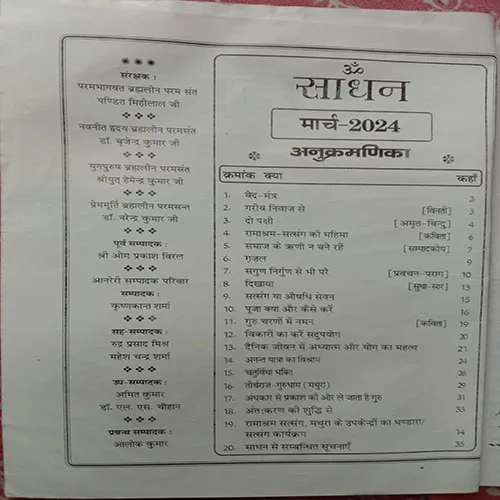 संरक्षक :
परमभागवत ब्रह्मलीन परम संत
पण्डित मिहीलाल जी
नवनीत हृदय ब्रह्मलीन परमसंत
डॉ. बृजेन्द्र कुमार जी
युगपुरुष ब्रह्मलीन परमसंत
श्रीयुत् हेमेन्द्र कुमार जी
प्रेममूर्ति ब्रह्मलीन परमसन्त
डॉ. नरेन्द्र कुमार जी
पूर्व सम्पादक :
श्री ओम प्रकाश विरल
आनरेरी सम्पादक परिवार
सम्पादक :
कृष्णकान्त शर्मा
सह-सम्पादक :
रुद्र प्रसाद मिश्र
महेश चन्द्र शर्मा
उप-सम्पादक :
अमित कुमार
डॉ. एल. एस. चौहान
प्रबन्ध सम्पादक :
आलोक कुमार
ॐ
साधन
मार्च-2024
अनुक्रमणिका
क्रमांक क्या कहाँ
1. वेद-मंत्र 3
2. गरीब निवाज से [विनती] 3
3. दो पक्षी [अमृत-बिन्दु] 4
4. रामाश्रम-सत्संग की महिमा [कविता] 6
5. समाज के ऋणी न बने रहें [सम्पादकीय] 7
6. ग़ज़ल 9
7. सगुण निर्गुण से भी परे [प्रवचन-पराग] 10
8. दिखावा [सुधा-सार] 13
9. सत्संग या औषधि सेवन 15
10. पूजा क्या और कैसे करें 16
11. गुरु चरणों में नमन [कविता] 19
12. विकारों का करें सदुपयोग 20
13. दैनिक जीवन में अध्यात्म और योग का महत्व 21
14. अनन्त यात्रा का विश्राम 24
15. चतुर्विधा भक्ति 26
16. तीर्थराज-गुरुधाम (मथुरा) 29
17. अंधकार से प्रकाश की ओर ले जाता है गुरु 31
18. अंतःकरण की शुद्धि से 33
19. रामाश्रम सत्संग, मथुरा के उपकेन्द्रों का भण्डारा/
सत्संग कार्यक्रम 14
20. साधन से सम्बन्धित सूचनाएँ 35